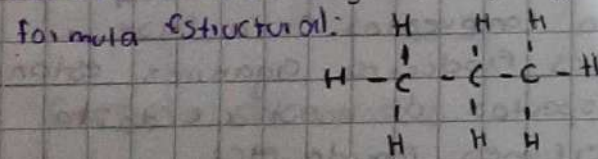 formula Estructural: H H H
H - C - C - C - H
H H H